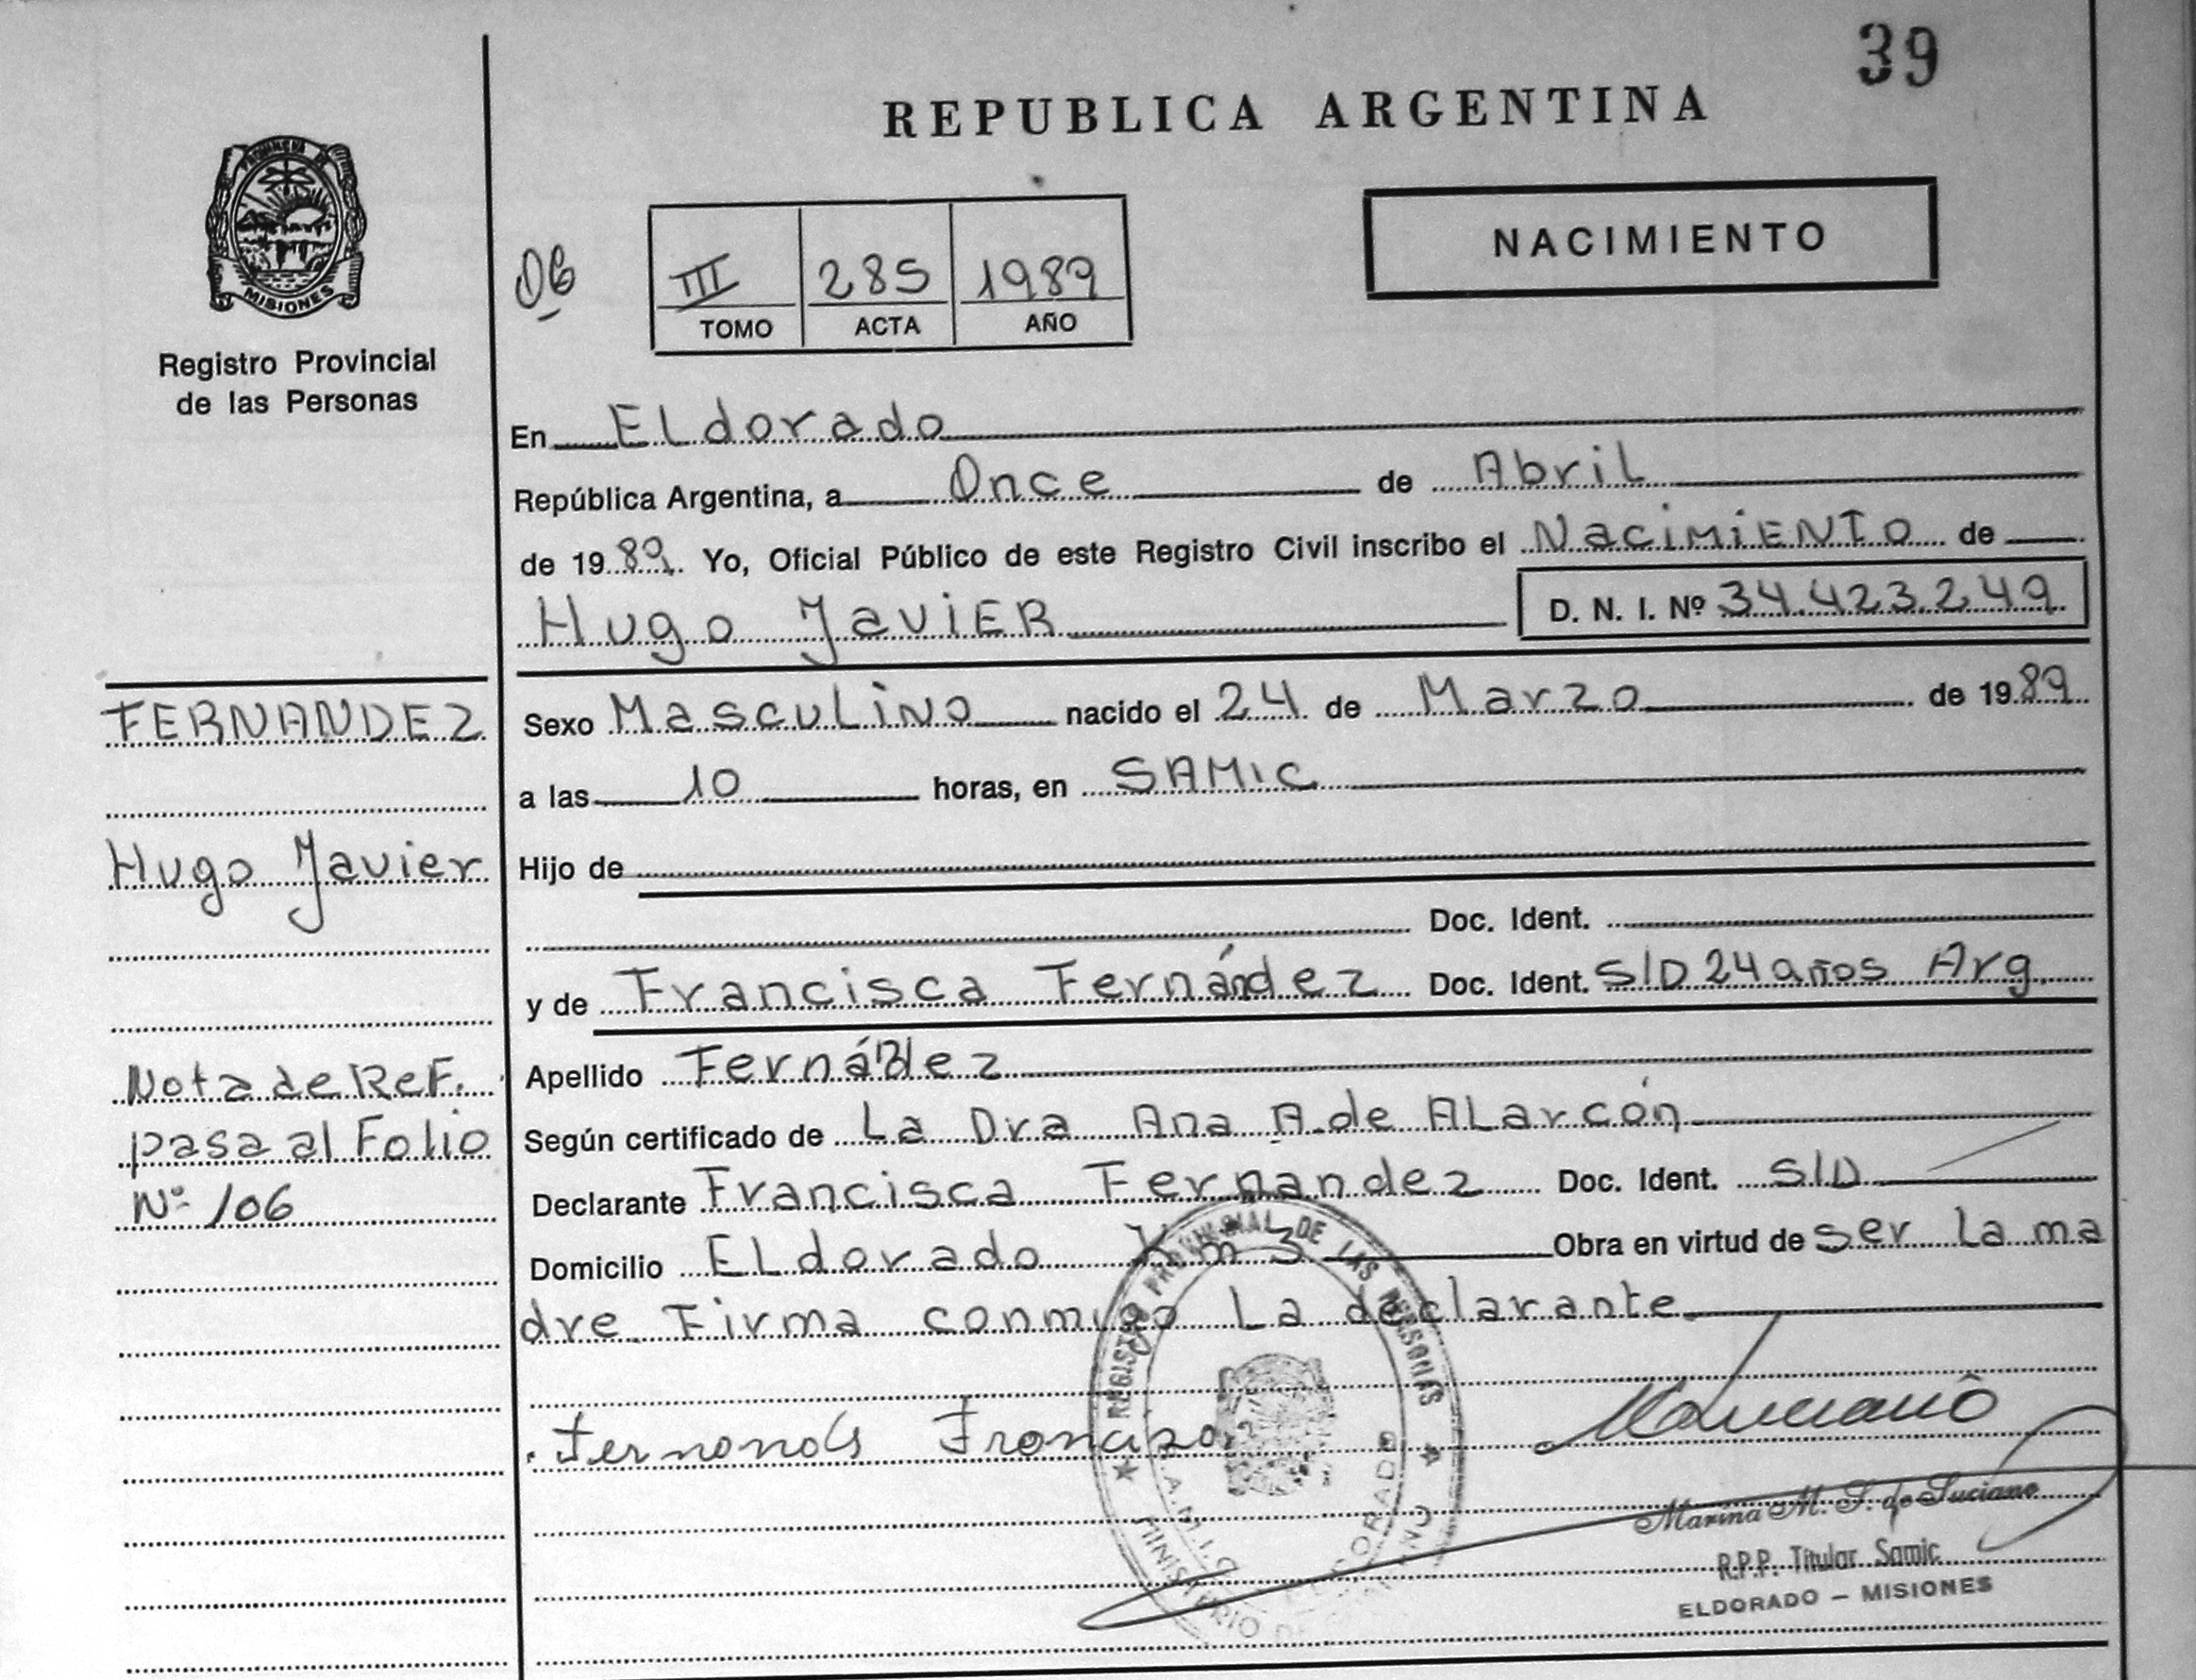 39
REPUBLICA ARGENTINA
PROVINCIA DE
MISIONES
Registro Provincial
de las Personas
06
III 285 1989
TOMO ACTA AÑO
NACIMIENTO
En Eldorado
República Argentina, a Once de Abril
de 1989. Yo, Oficial Público de este Registro Civil inscribo el NaciMiENTO de
Hugo JaviER D. N. I. Nº 34.423.249
FERNANDEZ
Hugo Javier
Nota de ReF.
pasa al Folio
Nº 106
Sexo MascuLiNo nacido el 24 de Marzo de 1989
a las 10 horas, en SAMIC
Hijo de
Doc. Ident.
y de Francisca Fernández Doc. Ident. S/D 24 años Arg.
Apellido Fernández
Según certificado de La Dra Ana A. de ALarcón
Declarante Francisca Fernandez Doc. Ident. S/D
Domicilio ELdorado Km 3 Obra en virtud de ser La ma
dre. Firma conmigo La declarante
REGISTRO PROVINCIAL DE LAS PERSONAS
S.A.M.I.C
ELDORADO
MINISTERIO DE
Marina M. S. de Luciano
R.P.P. Titular Samic
ELDORADO - MISIONES